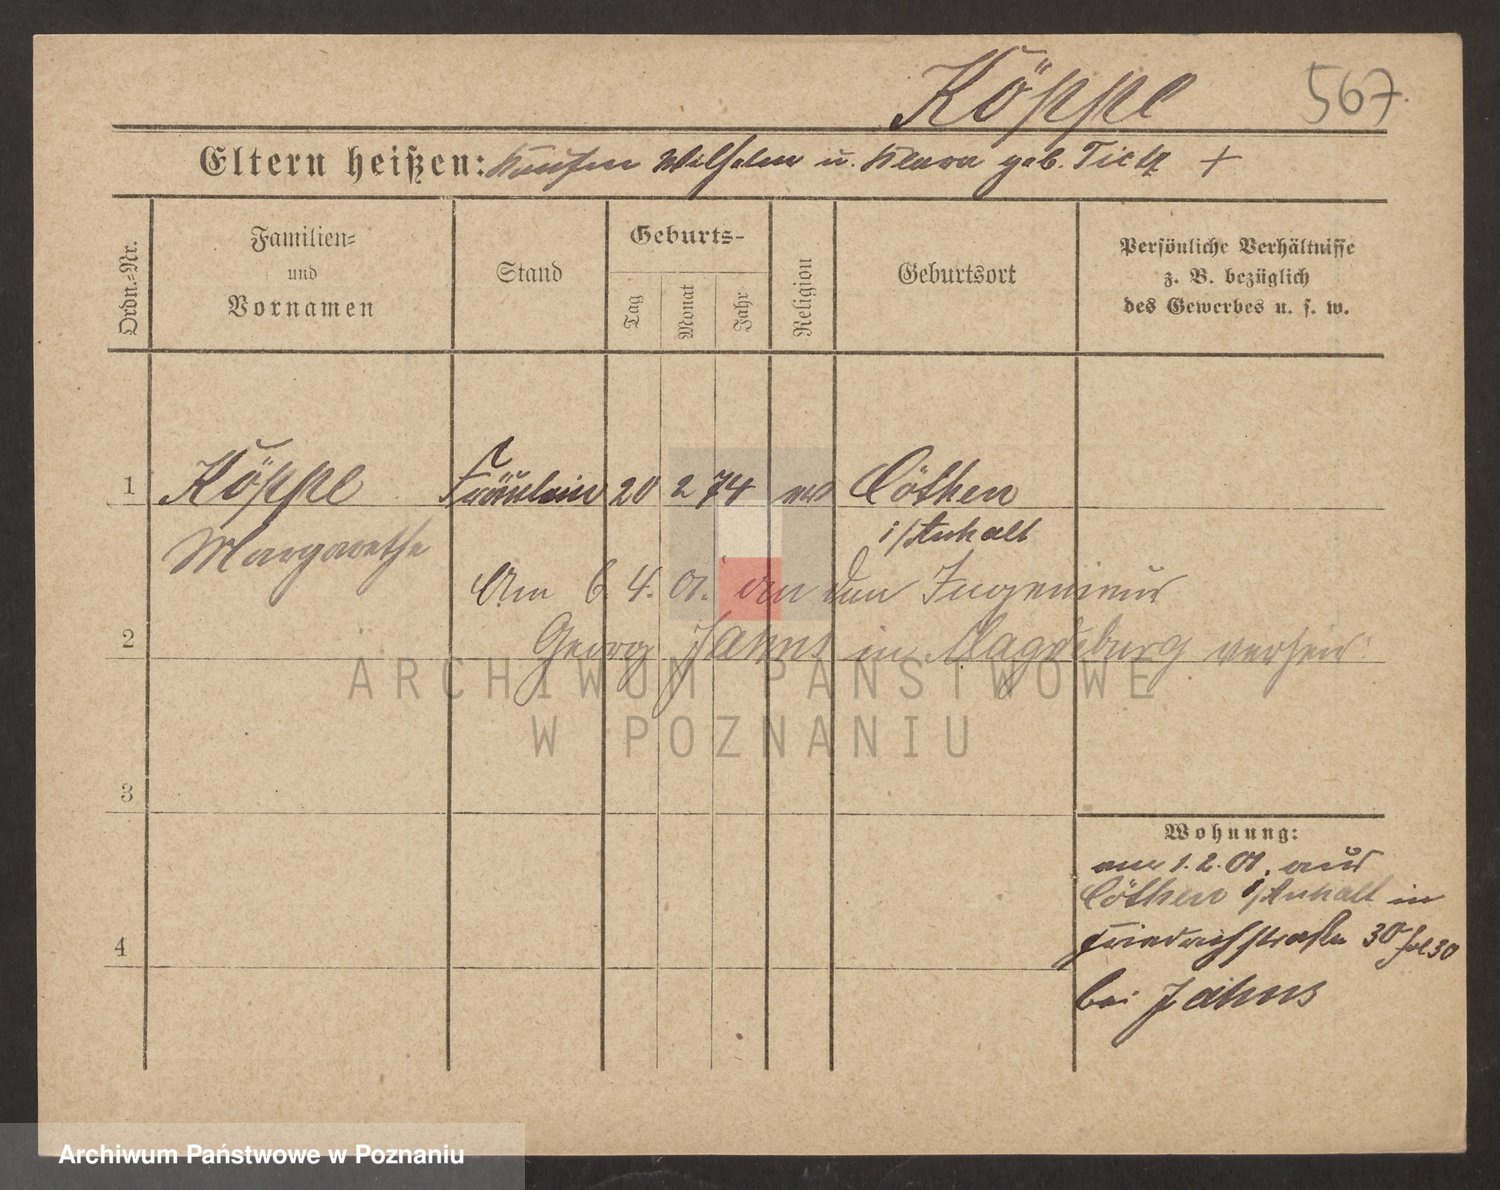 Köppe 567.
Eltern heißen: Kaufm Wilhelm u. Klara geb. +
Ordn.-Nr.
Familien-
und
Vornamen
Stand
Geburts-
Tag
Monat
Jahr
Religion
Geburtsort
Persönliche Verhältnisse
z. B. bezüglich
des Gewerbes u. s. w.
1 Köppe Fräulein 20 2 74 Cöthen
i/Anhalt
Margarethe
Am 6. 4. 01. an den Ingenieur
2 Georg Jahns in Magdeburg
ARCHIWUM PAŃSTWOWE
W POZNANIU
3
Wohnung:
am 1. 2. 01. aus
Cöthen i/Anhalt in
4 Friedrichstraße 30
bei Jahns
Archiwum Państwowe w Poznaniu